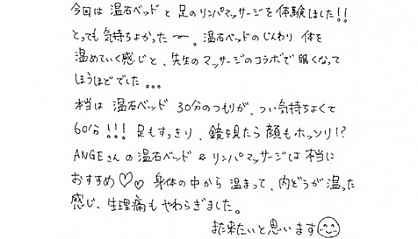 今回は 温石ベッド と 足のリンパマッサージを体験しました!!
とっても気持ちよかったー。温石ベッドのじんわり 体を
温めていく感じと、先生のマッサージのコラボで眠くなって
しまうほどでした...
本当は 温石ベッド 30分のつもりが、つい気持ちよくて
60分!!! 足もすっきり、鏡を見たら 顔もホッソリ!?
ANGEさんの温石ベッド & リンパマッサージは本当に
おすすめ♡♡ 身体の中から 温まって、内ぞうが温った
感じ、生理痛もやわらぎました。
また来たいと思います